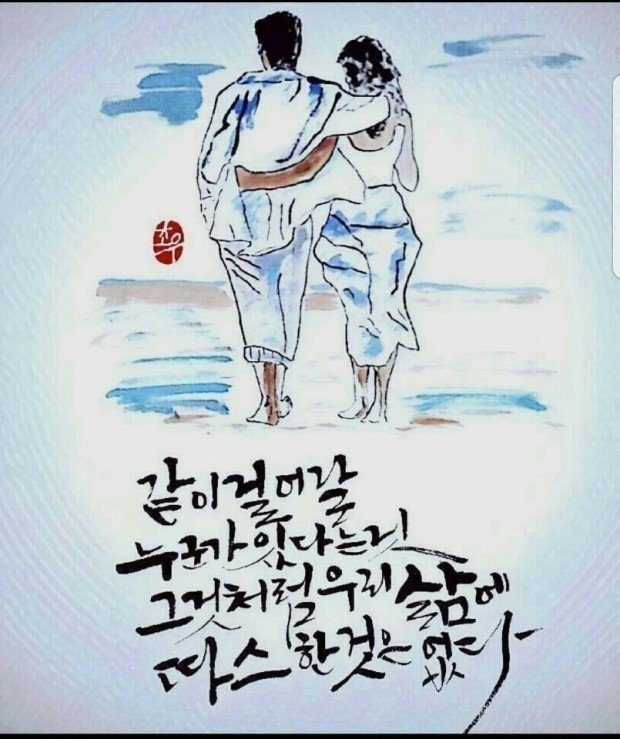 같이 걸어갈
누군가 있다는 것
그것처럼 우리 삶에
따스한 것은 없다